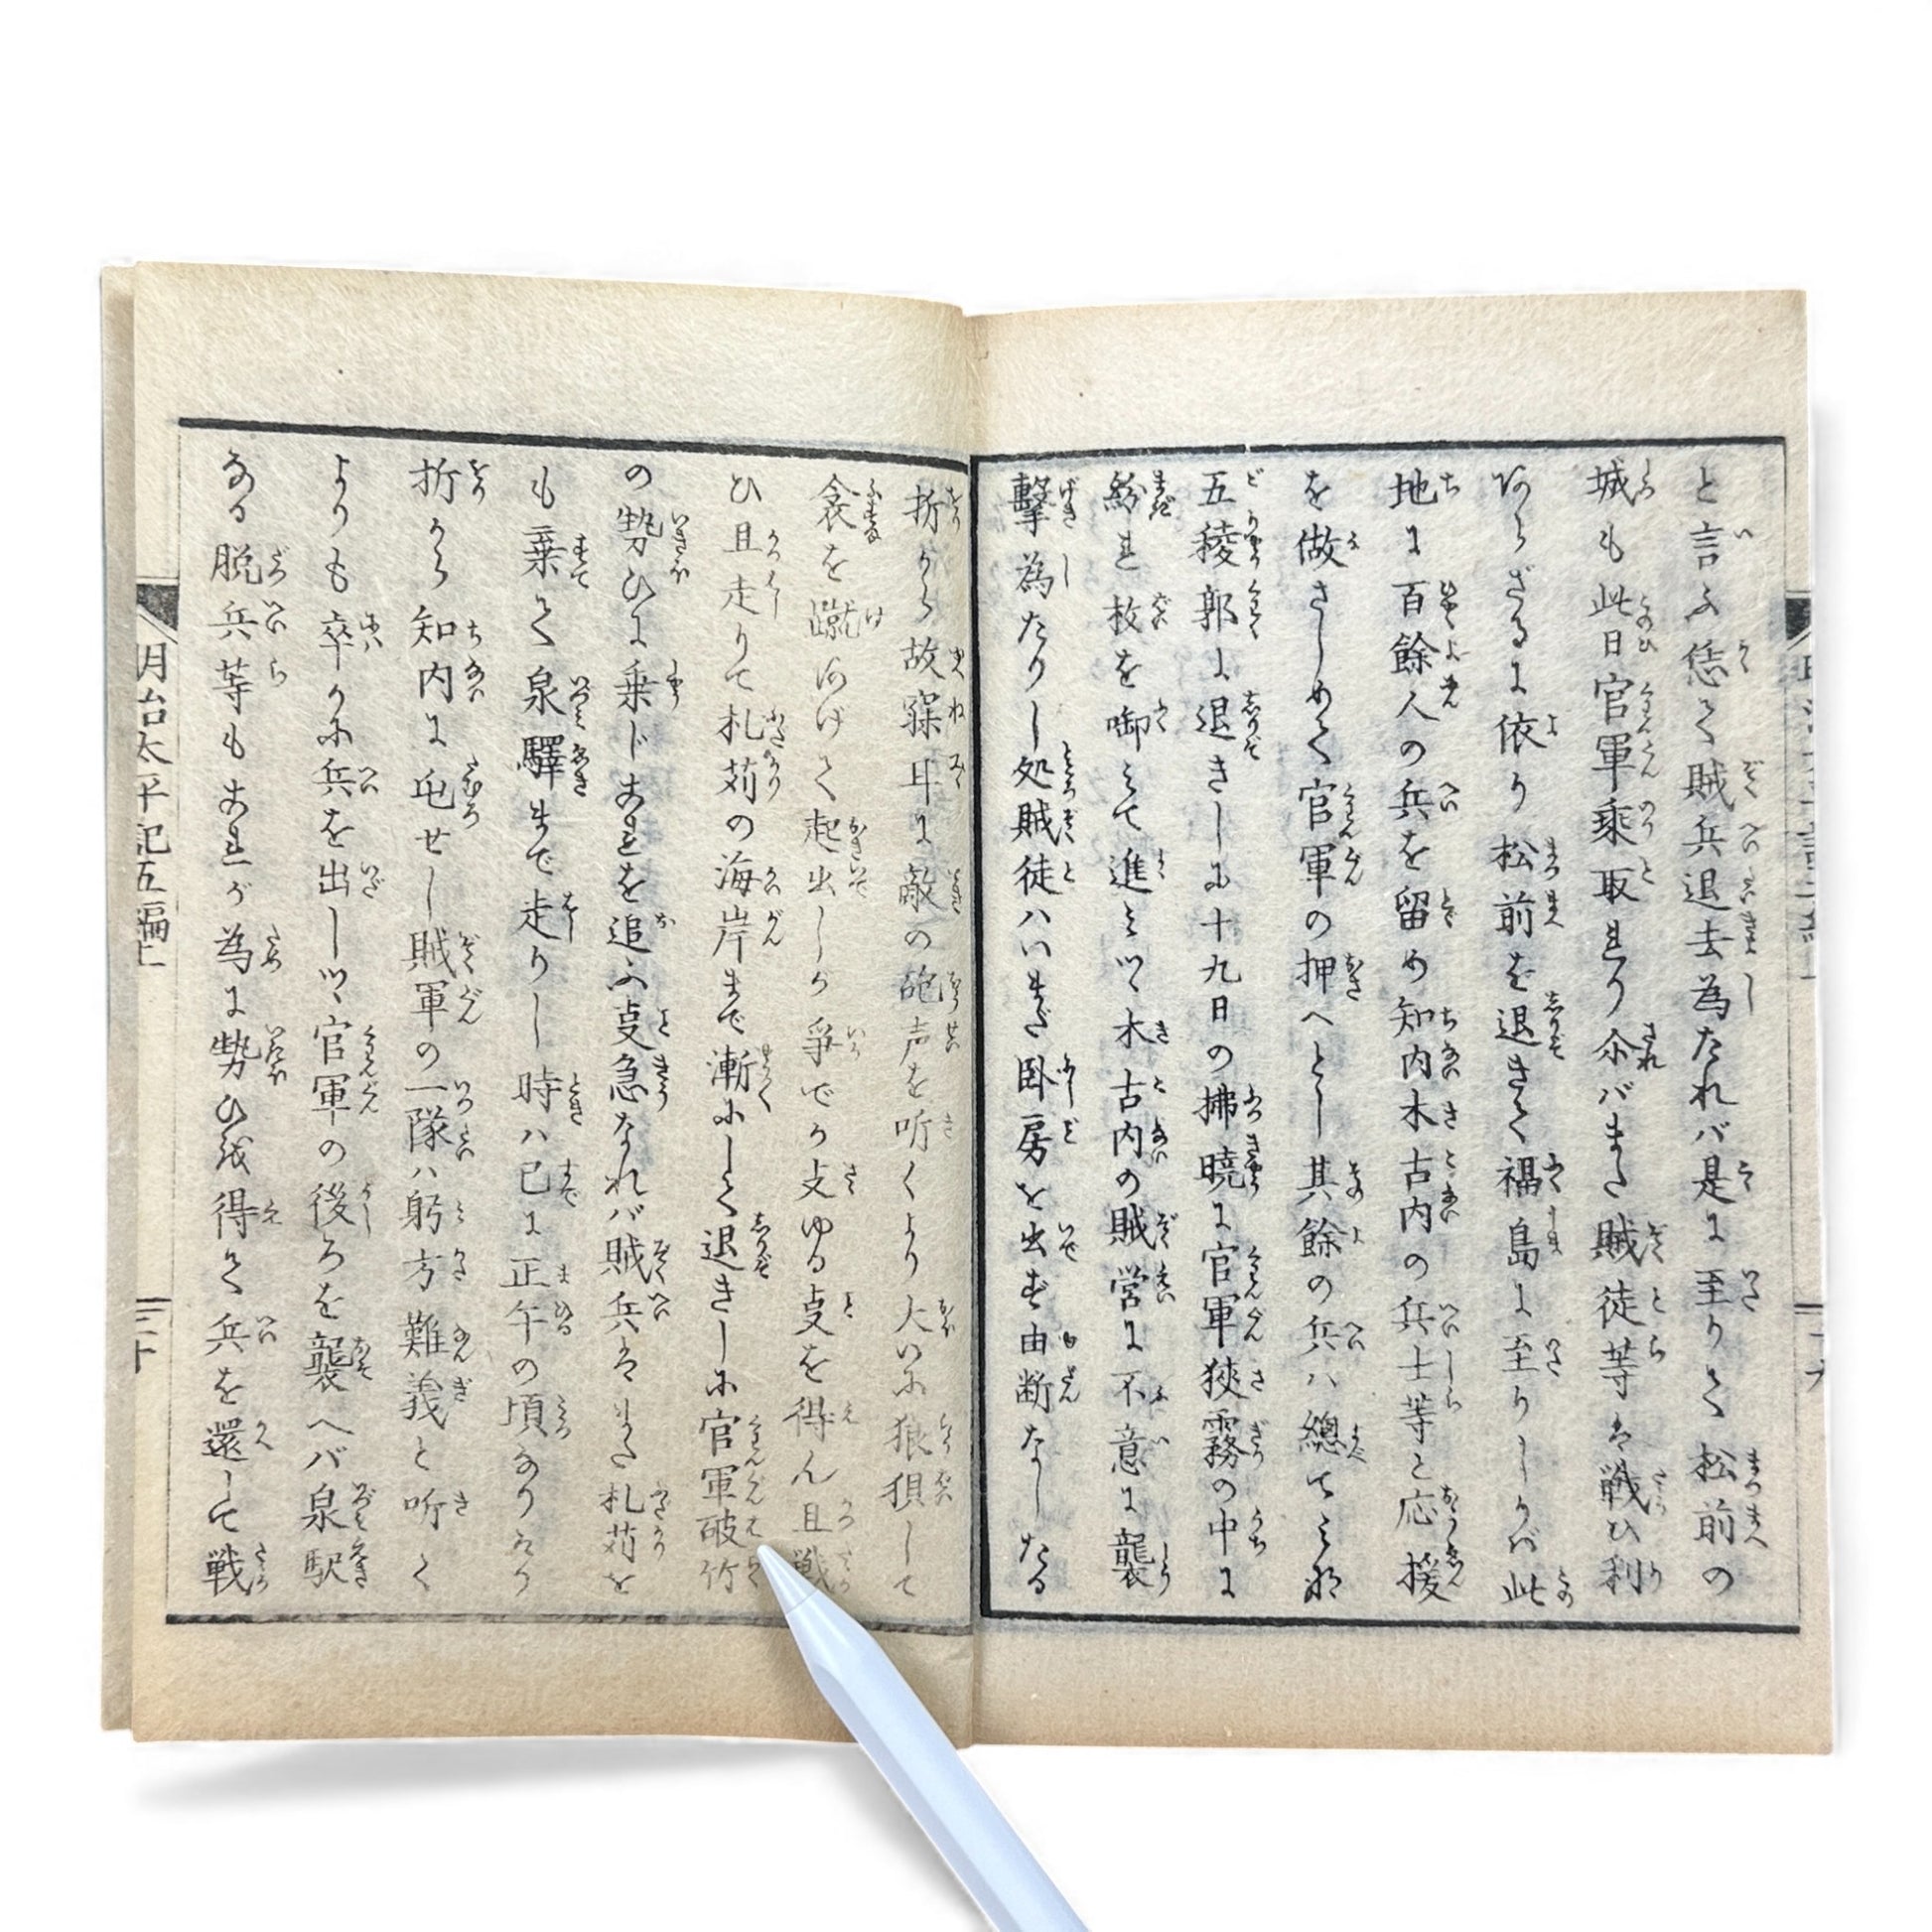 と言ふ恁て賊兵退去為たれバ是に至りて松前の
城も此日官軍乗取れり尒バまた賊徒等は戦ひ利
あらざるに依り松前を退きて福島に至りしかバ此
地に百餘人の兵を留め知内木古内の兵士等と応援
を做さしめて官軍の押へとし其餘の兵ハ總て
五稜郭に退きしに十九日の拂暁に官軍狹霧の中に
紛れ枚を啣みて進みツヽ木古内の賊営に不意に襲
撃為たりし処賊徒ハいまだ臥房を出ず由断なしたる
折から故寐耳に敵の砲声を听くより大いに狼狽して
衾を蹴のけて起出しが争でか支ゆる叓を得ん且戦
ひ且走りて札苅の海岸まで漸にして退きしに官軍破竹
の勢ひに乗じまれを追ふ叓急なれバ賊兵はまた札苅を
も棄て泉驛まで走りし時ハ已に正午の頃なりけり
折から知内に屯せし賊軍の一隊ハ躬方難義と听く
よりも卒かに兵を出しツヽ官軍の後ろを襲へバ泉駅
なる脱兵等もまれが為に勢ひを得て兵を還して戦
明治太平記五編上
三十